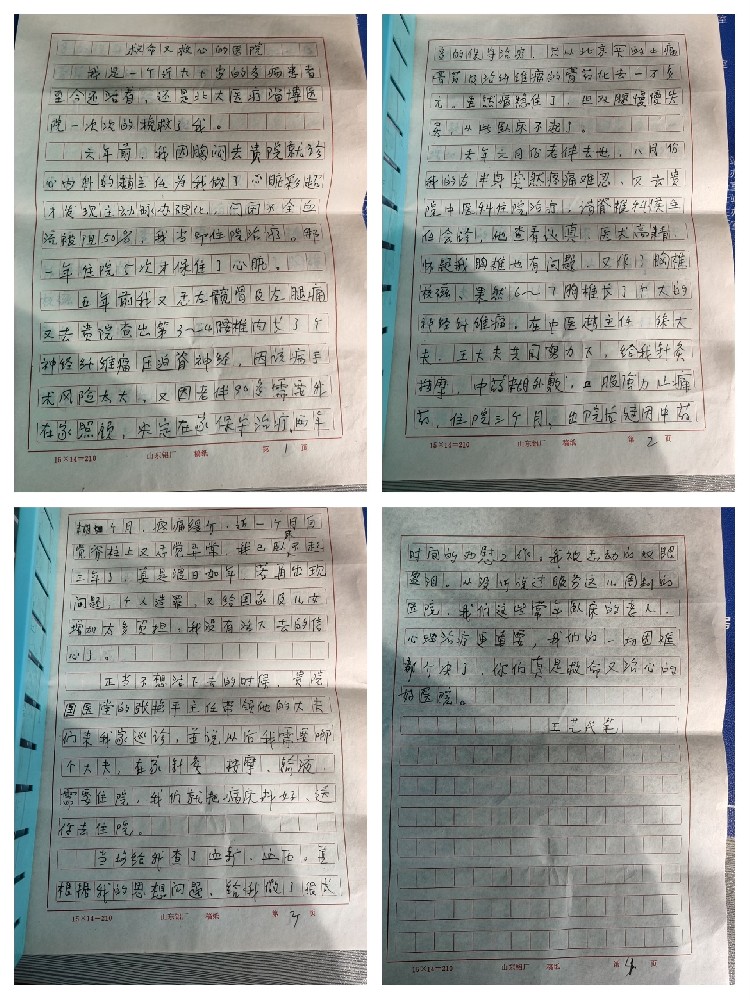 救命又救心的医院
我是一个近九十岁的多病患者
至今还活着，还是北大医疗淄博医
院一次次的挽救了我。
六年前，我因胸闷去贵院就诊
心内科的 主任为我做了心脏彩超
才发现主动脉 硬化，闭闭不全血
流 阻50%，我当即住院治疗。那
一年住院5次才保住了心脏。
五年前我又 左髋骨及左腿痛
又去贵院查出第3～4腰椎内长了个
神经纤维瘤压迫脊神经，因该病手
术风险太大，又因老伴90多需室外
在家照顾，决定在家保守治疗，
年的保守治疗，只从北京买的止痛
膏药及治纤维瘤的膏药化去一万多
元。虽然痛稳住了，但双腿慢慢失
灵，从此卧床不起了。
去年六月份老伴去世，八月份
我的右半身突然疼痛难忍，又去贵
院中医科住院治疗，请脊椎科 主
任会诊，他查看认真，医术高精，
怀疑我胸椎也有问题，又作了胸椎
核磁，果然6～7胸椎长了个大的
神经纤维瘤，在中医 主任 大
夫，王大夫共同努力下，给我针灸
按摩，中药糊外敷，口服强力止痛
药，住院三个月，出院后继用中药
糊 个月，疼痛缓介，近一个月自
觉脊柱上又感觉异常，我已卧床不起
三年了，真是渡日如年，若再出现
问题，个人造罪，又给国家及儿女
增加太多负担，我没有活下去的信
心了。
正当不想活下去的时候，贵院
国医堂的张 平主任带领他的大夫
们来我家巡诊，并说以后我需要哪
个大夫，在家针灸 按摩、输液，
需要住院，我们就把病床办好，送
你去住院。
当场给外查了血 ，血压。并
根据我的思想问题，给我做了很长
时间的劝慰工作，我被感动的双眼
含泪。从没听说过服务这么周到的
医院，我们这些常年卧床的老人，
心理治疗更重要，我们的一切困难
都介决了，你们真是救命又治心的
好医院。
王艺代笔
15×14=210 山东铝厂 稿纸 第1页
15×14=210 山东铝厂 稿纸 第2页
15×14=210 山东铝厂 稿纸 第3页
15×14=210 山东铝厂 稿纸 第4页